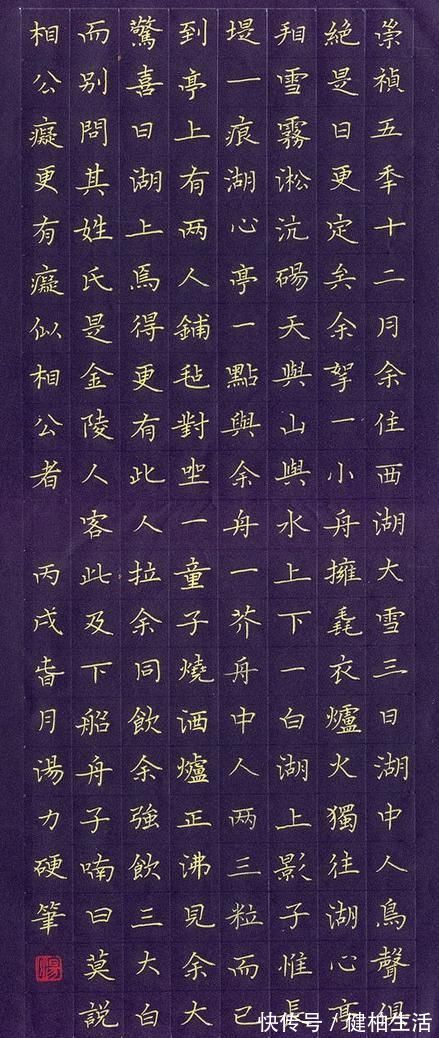 崇禎五季十二月余住西湖大雪三日湖中人鳥聲俱
絶是日更定矣余拏一小舟擁毳衣爐火獨往湖心亭
雪霧淞沆碭天與山與水上下一白湖上影子惟長
堤一痕湖心亭一點與余舟一芥舟中人两三粒而已
到亭上有两人鋪毡對坐一童子燒酒爐正沸見余大
驚喜曰湖上焉得更有此人拉余同飲余強飲三大白
而别問其姓氏是金陵人客此及下船舟子喃曰莫説
相公癡更有癡似相公者 丙戌旾月湯力硬筆
湯
快传号/健柏生活